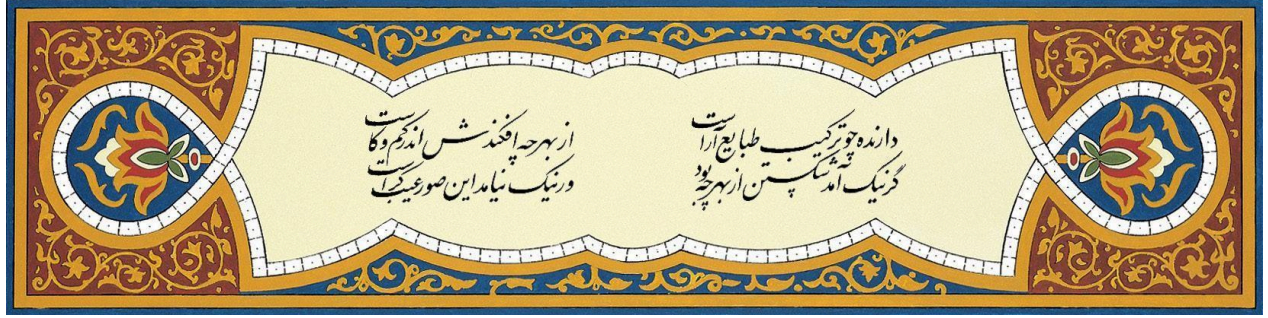 دارنده چو ترکیب طبایع آراست
از بهر چه افکندش اندر کم و کاست
گر نیک آمد شکستن از بهر چه بود
ور نیک نیامد این صور عیب کراست